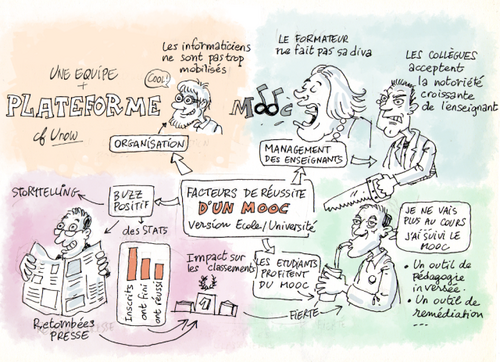 UNE EQUIPE
+
PLATEFORME
cf Unow
Les informaticiens
ne sont pas trop
mobilisés
COOL!
ORGANISATION
MOOC
LE FORMATEUR
ne fait pas sa diva
LES COLLÈGUES
acceptent
la notoriété
croissante
de l'enseignant
MANAGEMENT
DES ENSEIGNANTS
FACTEURS DE RÉUSSITE
D'UN MOOC
version École/Université
STORYTELLING
BUZZ
POSITIF
des STATS
Inscrits
ont fini
ont réussi
Retombées
PRESSE
Impact sur
les classements
1
LES ETUDIANTS
PROFITENT
DU MOOC
FIERTÉ
JE NE VAIS
PLUS AU COURS
J'AI SUIVI LE
MOOC
• Un outil de
Pédagogie
inversée.
• Un outil de
remédiation
...